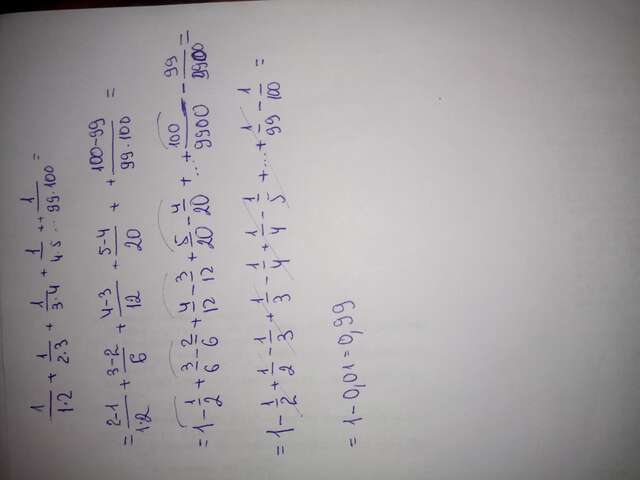 1/1·2 + 1/2·3 + 1/3·4 + 1/4·5 ++ ... 1/99·100 =
= 2-1/1·2 + 3-2/6 + 4-3/12 + 5-4/20 + + 100-99/99·100 =
= 1 - 1/2 + 3/6 - 2/6 + 4/12 - 3/12 + 5/20 - 4/20 + ... + 100/9900 - 99/9900 =
= 1 - 1/2 + 1/2 - 1/3 + 1/3 - 1/4 + 1/4 - 1/5 + ... + 1/99 - 1/100 =
= 1 - 0,01 = 0,99